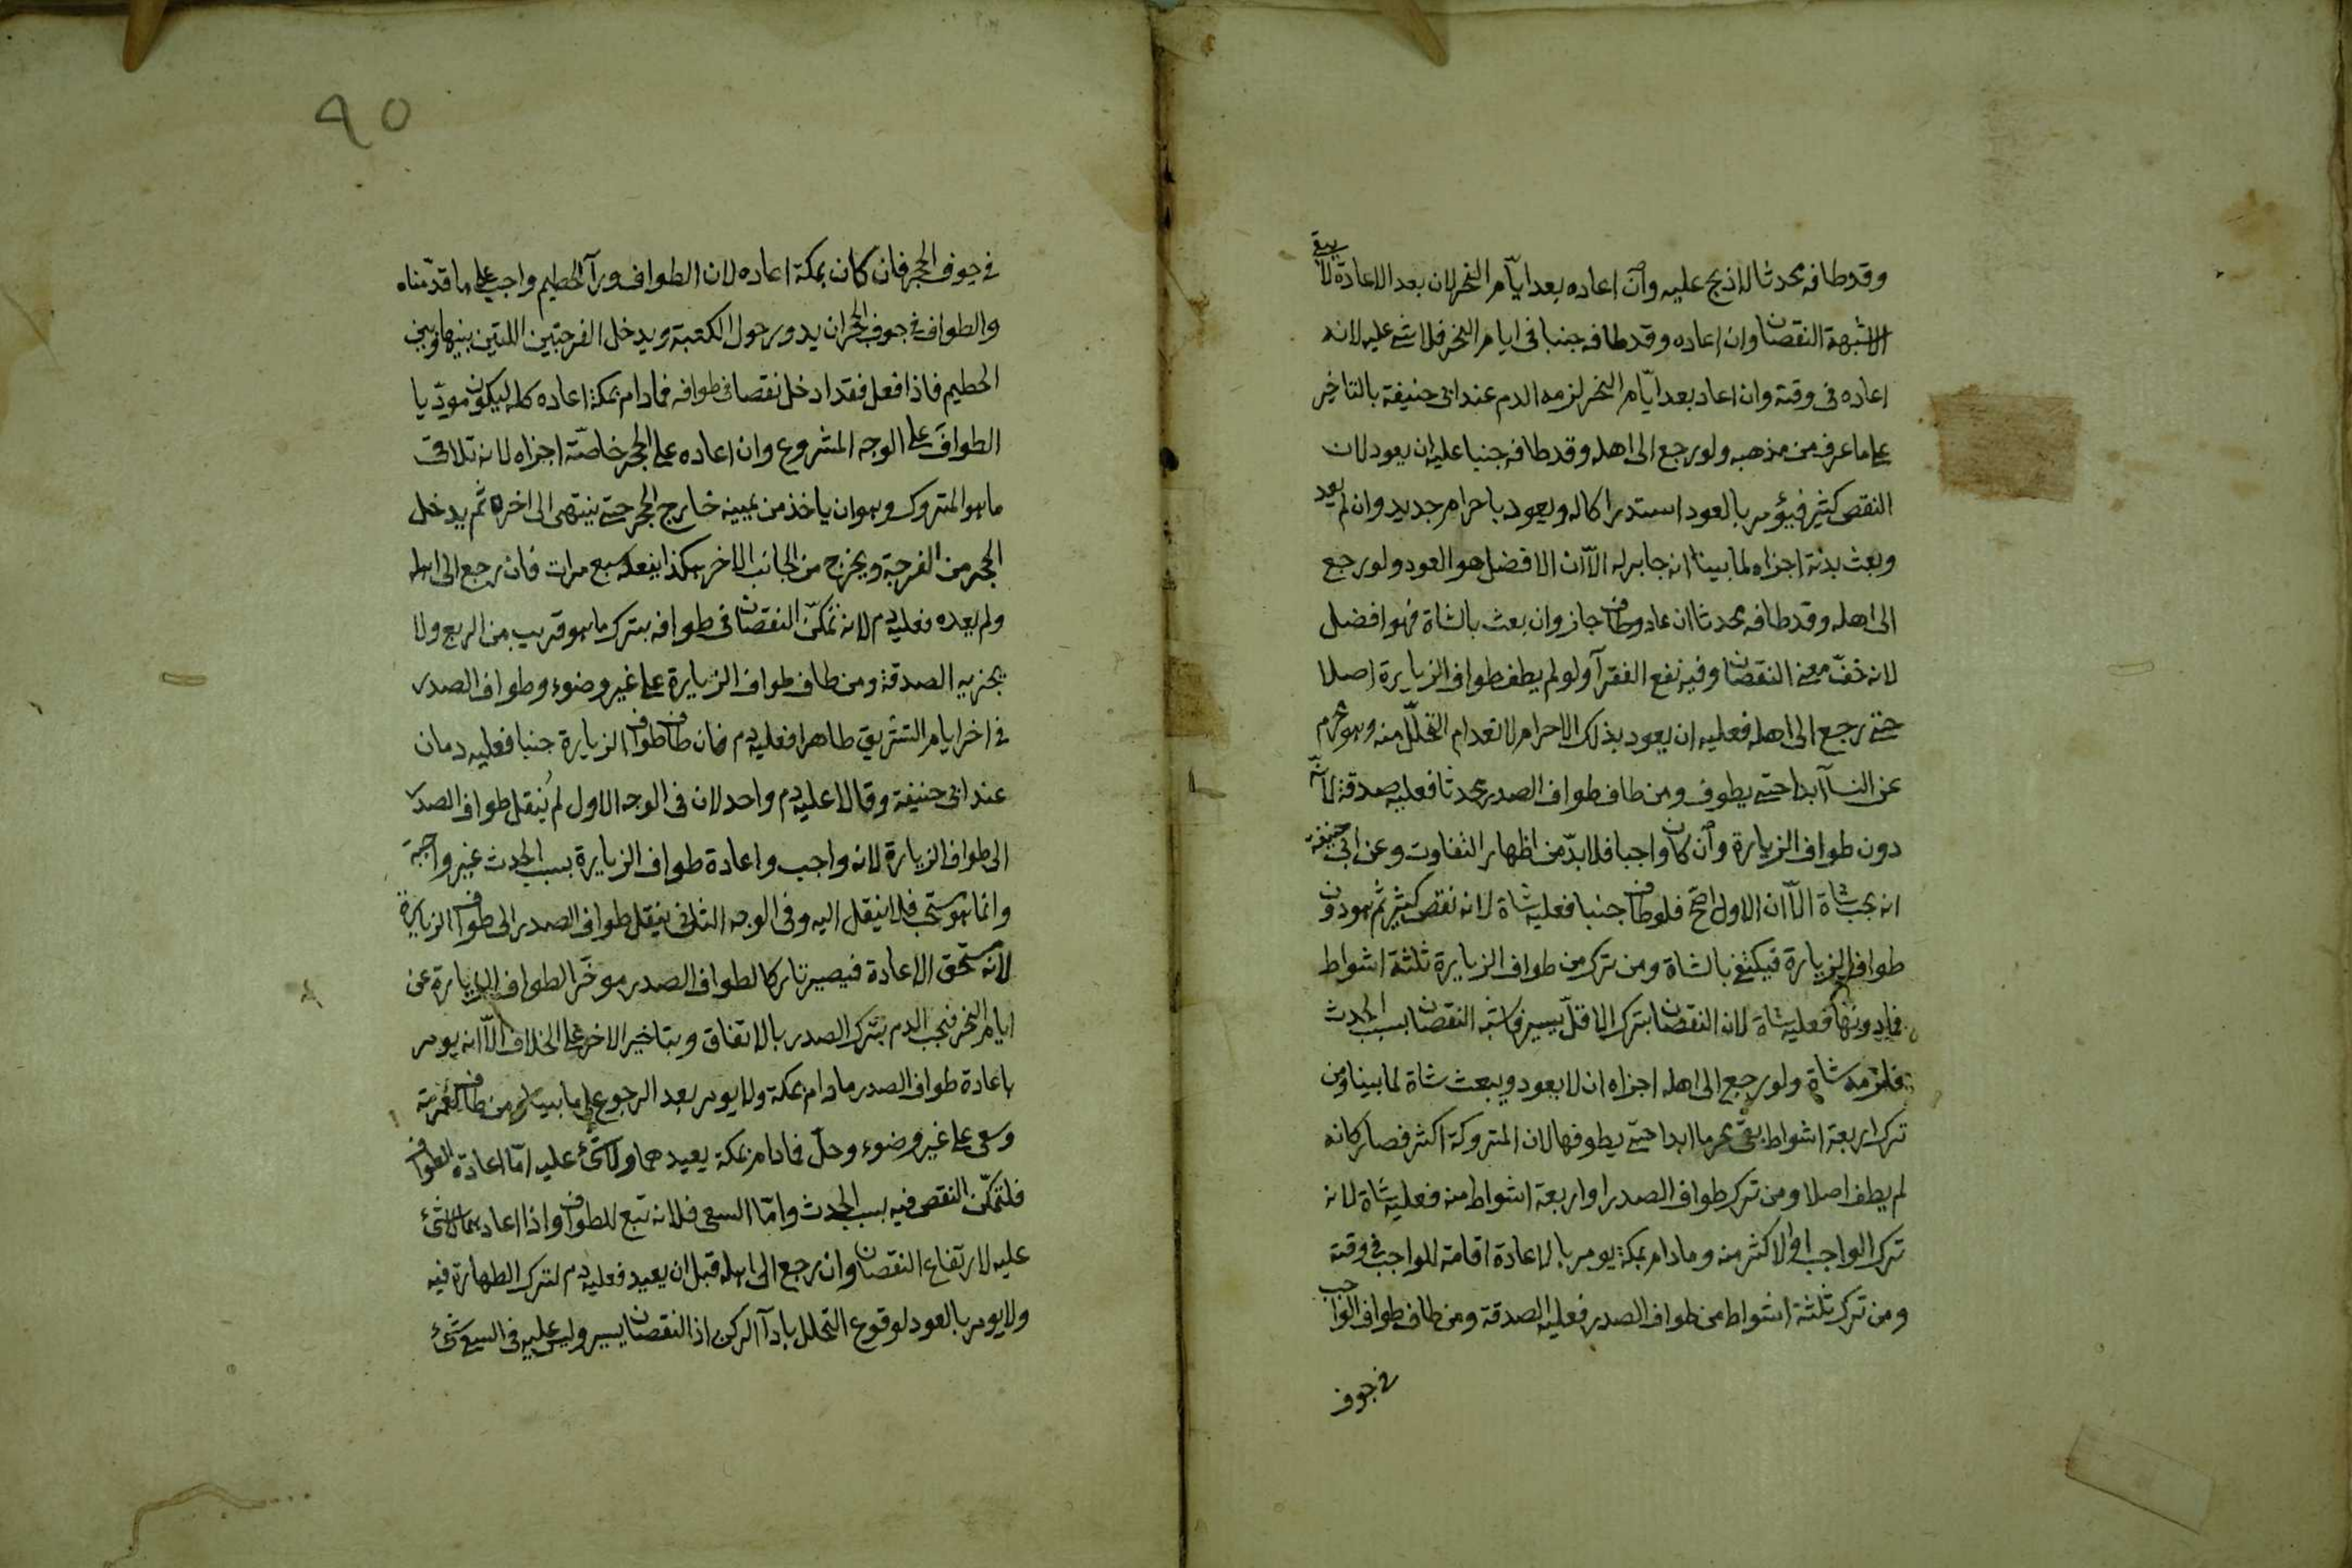 وقد طافه محدثا لا ذبح عليه وان اعاده بعد ايّام النحر لان بعد الاعادة لا يبقى
الا شبهة النقصان وان اعاده وقد طافه جنبا فى ايام النحر فلا شئ عليه لانه
اعاده فى وقته وان اعاد بعد ايّام النحر لزمه الدم عند ابى حنيفة بالتاخير
على ما عرف من مذهبه ولو رجع الى اهله وقد طافه جنبا عليه ان يعود لان
النقص كثير فيؤمر بالعود استدراكا له ويعود باحرام جديد وان لم يعد
وبعث بدنة اجزاه لما بينا انه جابر له الّا ان الافضل هو العود ولو رجع
الى اهله وقد طافه محدثا ان عاد وطاف جاز وان بعث بالشاة فهو افضل
لانه خفّ معنى النقصان وفيه نفع الفقرآ ولو لم يطف طواف الزيارة اصلا
حتى رجع الى اهله فعليه ان يعود بذلك الاحرام لانعدام التحلّل منه وهو محرم
عن النسآ ابدا حتى يطوف ومن طاف طواف الصدر محدثا فعليه صدقة لانّه
دون طواف الزيارة وان كان واجبا فلا بدّ من اظهار التفاوت وعن ابى حنيفة
انه يجب شاة الّا ان الاول اصحّ فلو طاف جنبا فعليه شاة لانه نقص كثير ثم هو دون
طواف الزيارة فيكتفى بالشاة ومن ترك من طواف الزيارة ثلثة اشواط
فما دونها فعليه شاة لان النقصان بترك الاقلّ يسير فاشبه النقصان بسبب الحدث
فلزمه شاة ولو رجع الى اهله اجزاه ان لا يعود ويبعث شاة لما بينا ومن
ترك اربعة اشواط بقى محرما ابدا حتى يطوفها لان المتروكة اكثر فصار كانه
لم يطف اصلا ومن ترك طواف الصدر او اربعة اشواط منه فعليه شاة لانه
ترك الواجب او الاكثر منه وما دام بمكة يومر بالاعادة اقامة للواجب فى وقته
ومن ترك ثلثة اشواط من طواف الصدر فعليه الصدقة ومن طاف طواف الواجب
فى جوف
٩٥
فى جوف الحجر فان كان بمكة اعاده لان الطواف ورآ الحطيم واجب على ما قدّمناه
والطواف فى جوف الحجر ان يدور حول الكعبة ويدخل الفرجتين اللتين بينها وبين
الحطيم فاذا فعل فقد ادخل نقصا فى طوافه فما دام بمكة اعاده كله ليكون مودّيا
الطواف على الوجه المشروع وان اعاده على الحجر خاصّة اجزاه لانه تلافى
ما هو المتروك وهو ان ياخذ من يمينه خارج الحجر حتى ينتهى الى اخره ثم يدخل
الحجر من الفرجة ويخرج من الجانب الاخر هكذا يفعله سبع مرات فان رجع الى اهله
ولم يعده فعليه دم لانه تمكّن النقصان فى طوافه بترك ما هو قريب من الربع ولا
يجزيه الصدقة ومن طاف طواف الزيارة على غير وضوء وطواف الصدر
فى اخر ايام التشريق طاهرا فعليه دم فان طاف طواف الزيارة جنبا فعليه دمان
عند ابى حنيفة وقالا عليه دم واحد لان فى الوجه الاول لم يُنقل طواف الصدر
الى طواف الزيارة لانه واجب واعادة طواف الزيارة بسبب الحدث غير واجبة
وانما هو مستحب فلا ينقل اليه وفى الوجه الثانى ينقل طواف الصدر الى طواف الزيارة
لانه مستحق الاعادة فيصير تاركا لطواف الصدر موخّر الطواف الزيارة عن
ايام النحر فيجب الدم بترك الصدر بالاتفاق وبتاخير الاخر على الخلاف الّا انه يومر
باعادة طواف الصدر ما دام بمكة ولا يومر بعد الرجوع على ما بينا ومن طاف لعمرته
وسعى على غير وضوء وحلّ فما دام بمكة يعيدهما ولا شئ عليه امّا اعادة الطواف
فلتمكّن النقص فيه بسبب الحدث وامّا السعى فلانه تبع للطواف واذا اعادهما لا شئ
عليه لارتفاع النقصان وان رجع الى اهله قبل ان يعيد فعليه دم لترك الطهارة فيه
ولا يومر بالعود لوقوع التحلل بادآ الركن اذ النقصان يسير وليس عليه فى السعى شئ